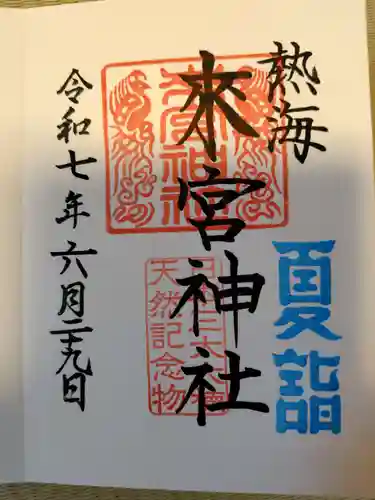 熱海
夏詣
來宮神社
來宮神社
天然記念物
令和七年六月二十九日